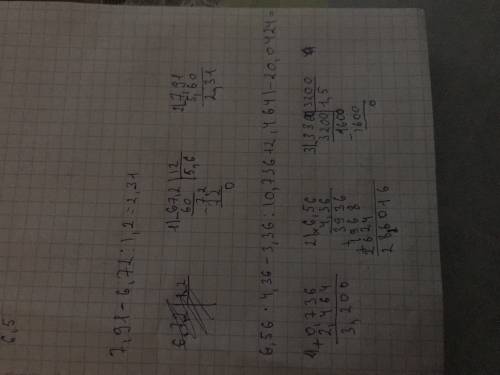 6,5
7,91 - 6,72 : 1,2 = 2,31
1) 67,2 | 12
60 | 5,6
- 7,2
7 2
0
2) 7,91
5,60
2,31
6,56 · 4,36 - 3,36 : (0,736 + 2,464) - 20,0424 =
1) + 0,736
2,464
3,200
2) × 6,56
4,36
3936
+ 1968
2624
28,6016
3) 3360 | 3200
3200 | 1,5
1600
- 1600
0